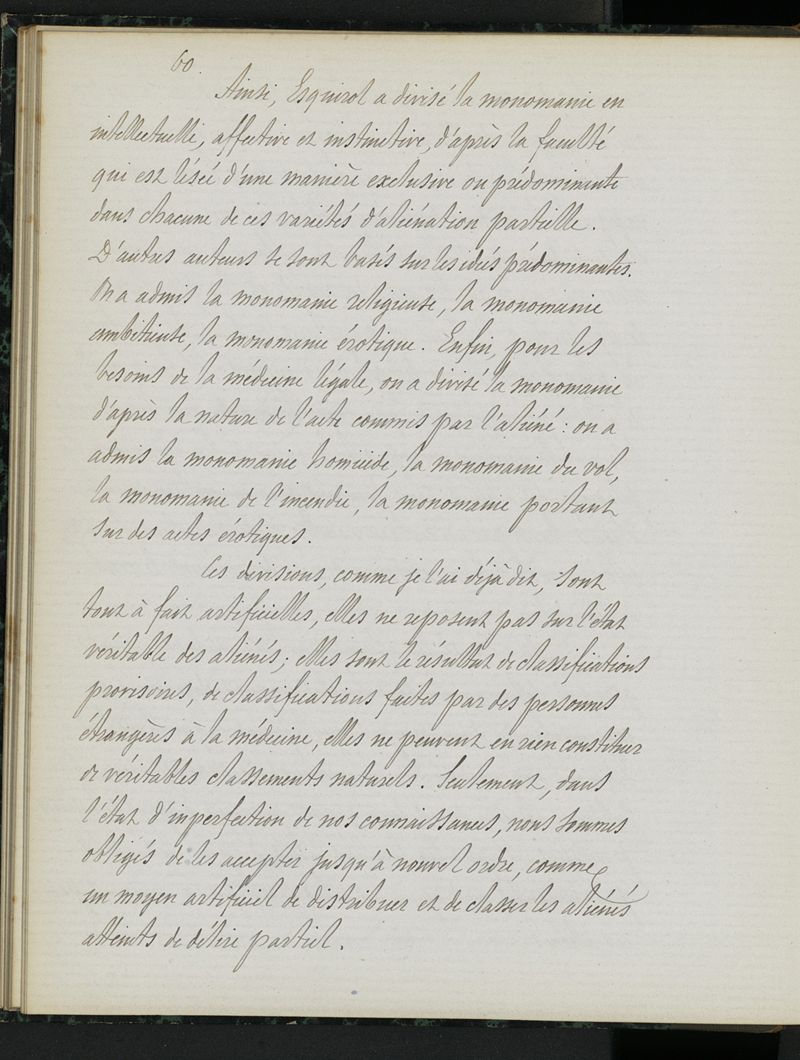 60.
Ainsi, Esquirol a divisé la monomanie en
intellectuelle, affective et instinctive, d'après la faculté
qui est lésée d'une manière exclusive ou prédominante
dans chacune de ces variétés d'aliénation partielle.
D'autres auteurs se sont basés sur les idées prédominantes.
On a admis la monomanie religieuse, la monomanie
ambitieuse, la monomanie érotique. Enfin, pour les
besoins de la médecine légale, on a divisé la monomanie
d'après la nature de l'acte commis par l'aliéné : on a
admis la monomanie homicide, la monomanie du vol,
la monomanie de l'incendie, la monomanie portant
sur des actes érotiques.
Ces divisions, comme je l'ai déjà dit, sont
tout à fait artificielles, elles ne reposent pas sur l'état
véritable des aliénés ; elles sont le résultat de classifications
provisoires, de classifications faites par des personnes
étrangères à la médecine, elles ne peuvent en rien constituer
de véritables classements naturels. Seulement, dans
l'état d'imperfection de nos connaissances, nous sommes
obligés de les accepter jusqu'à nouvel ordre, comme
un moyen artificiel de distribuer et de classer les aliénés
atteints de délire partiel.